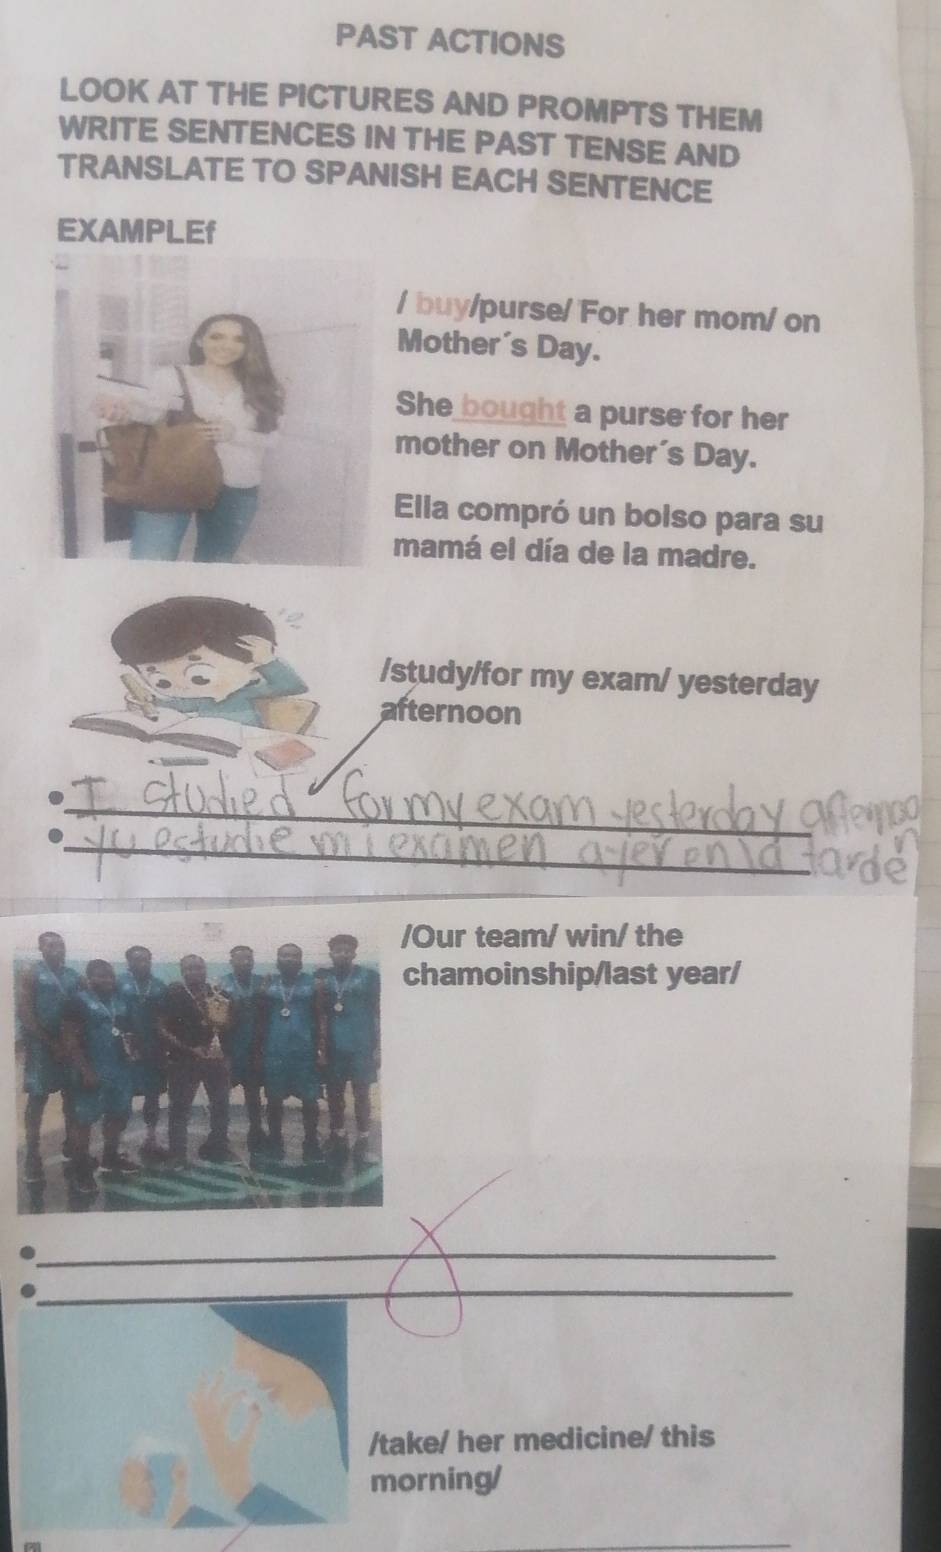 PAST ACTIONS
LOOK AT THE PICTURES AND PROMPTS THEM
WRITE SENTENCES IN THE PAST TENSE AND
TRANSLATE TO SPANISH EACH SENTENCE
EXAMPLEf
/ buy/purse/ For her mom/ on
Mother´s Day.
She bought a purse for her
mother on Mother´s Day.
Ella compró un bolso para su
mamá el día de la madre.
/study/for my exam/ yesterday
afternoon
I studied for my exam yesterday afternoon
yu estudie mi examen ayer en la tarde
/Our team/ win/ the
chamoinship/last year/
/take/ her medicine/ this
morning/